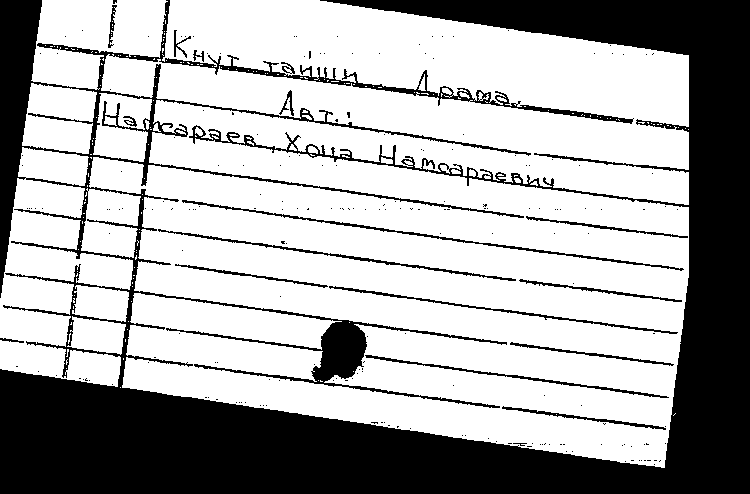 Кнут тайши. Драма.
Авт.:
Намсараев, Хоца Намсараевич